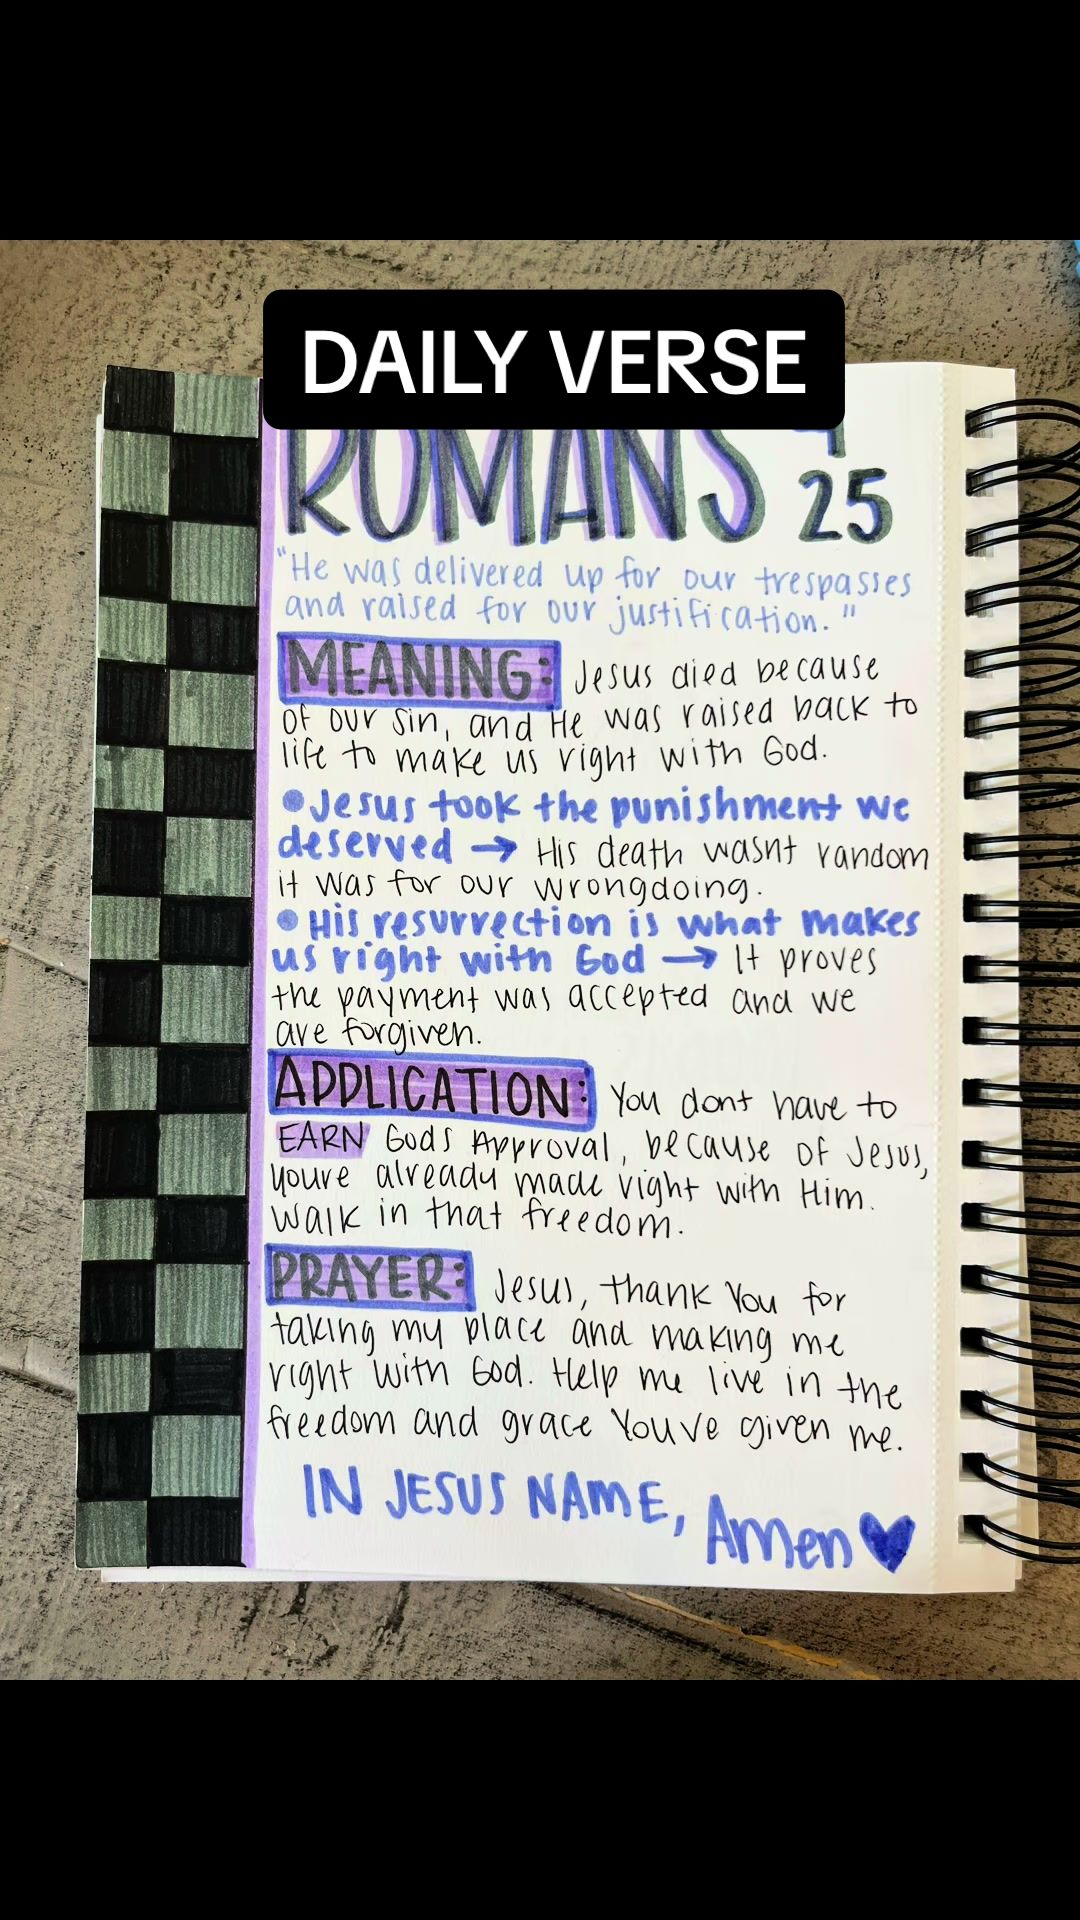 DAILY VERSE
ROMANS 4
25
"He was delivered up for our trespasses
and raised for our justification."
MEANING: Jesus died because
of our sin, and He was raised back to
life to make us right with God.
• Jesus took the punishment we
deserved → His death wasnt random
it was for our wrongdoing.
• His resurrection is what makes
us right with God → It proves
the payment was accepted and we
are forgiven.
APPLICATION: You dont have to
EARN Gods Approval, because of Jesus,
youre already made right with Him.
Walk in that freedom.
PRAYER: Jesus, thank You for
taking my place and making me
right with God. Help me live in the
freedom and grace Youve given me.
IN JESUS NAME, Amen